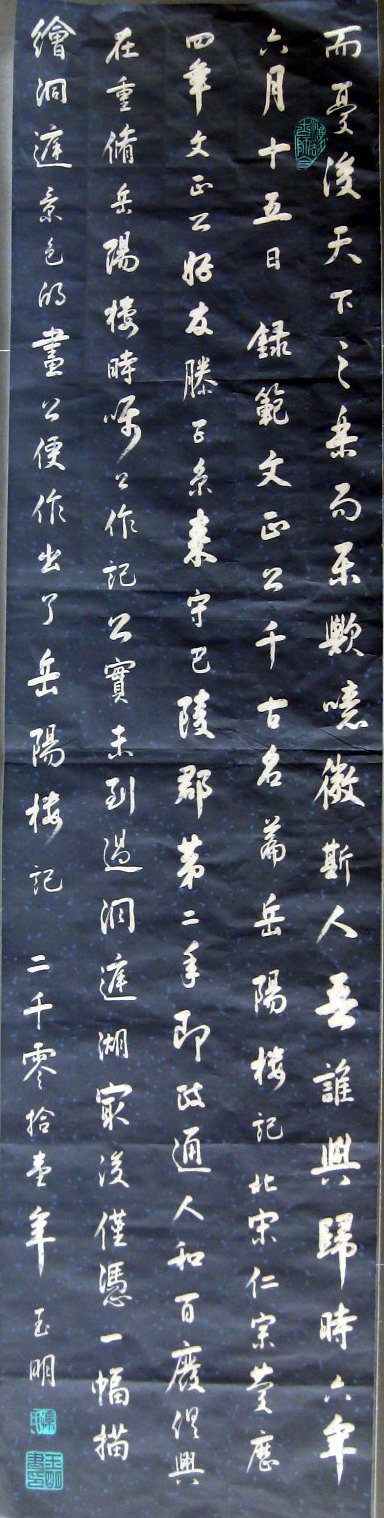 而憂後天下之樂而樂歟噫微斯人吾誰與歸時六年
六月十五日 録範文正公千古名篇岳陽楼記北宋仁宗慶厯
四年文正公好友滕子京来守巴陵郡第二年即政通人和百廢俱興
在重脩岳陽楼時嘱公作記公實未到過洞庭湖最後僅憑一幅描
繪洞庭景色的畫公便作出了岳陽楼記 二千零拾壹年 玉明